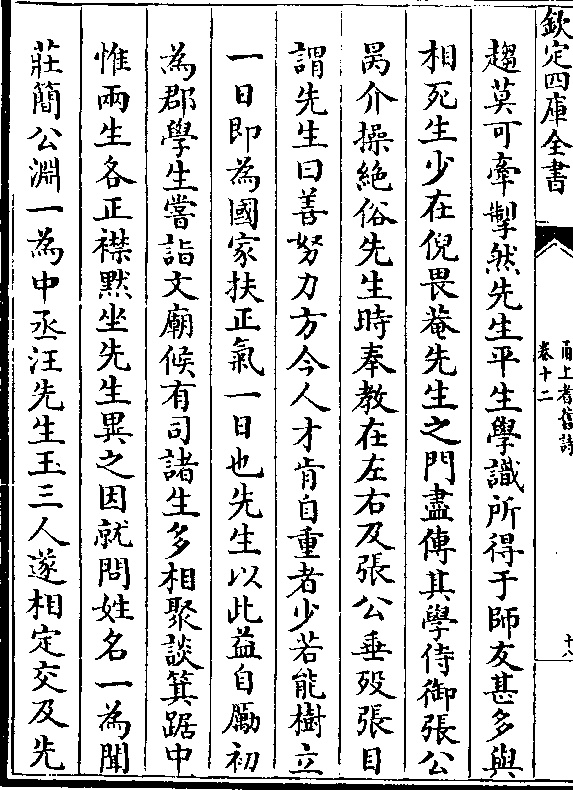 欽定四庫全書
甬上耆舊詩
卷十二
趨莫可牽掣然先生平生學識所得于師友甚多與
相死生少在倪畏菴先生之門盡傳其學侍御張公
昺介操絶俗先生時奉教在左右及張公垂殁張目
謂先生曰善努力方今人才肯自重者少若能樹立
一日即為國家扶正氣一日也先生以此益自勵初
為郡學生嘗詣文廟候有司諸生多相聚談箕踞中
惟兩生各正襟默坐先生異之因就問姓名一為聞
莊簡公淵一為中丞汪先生玉三人遂相定交及先